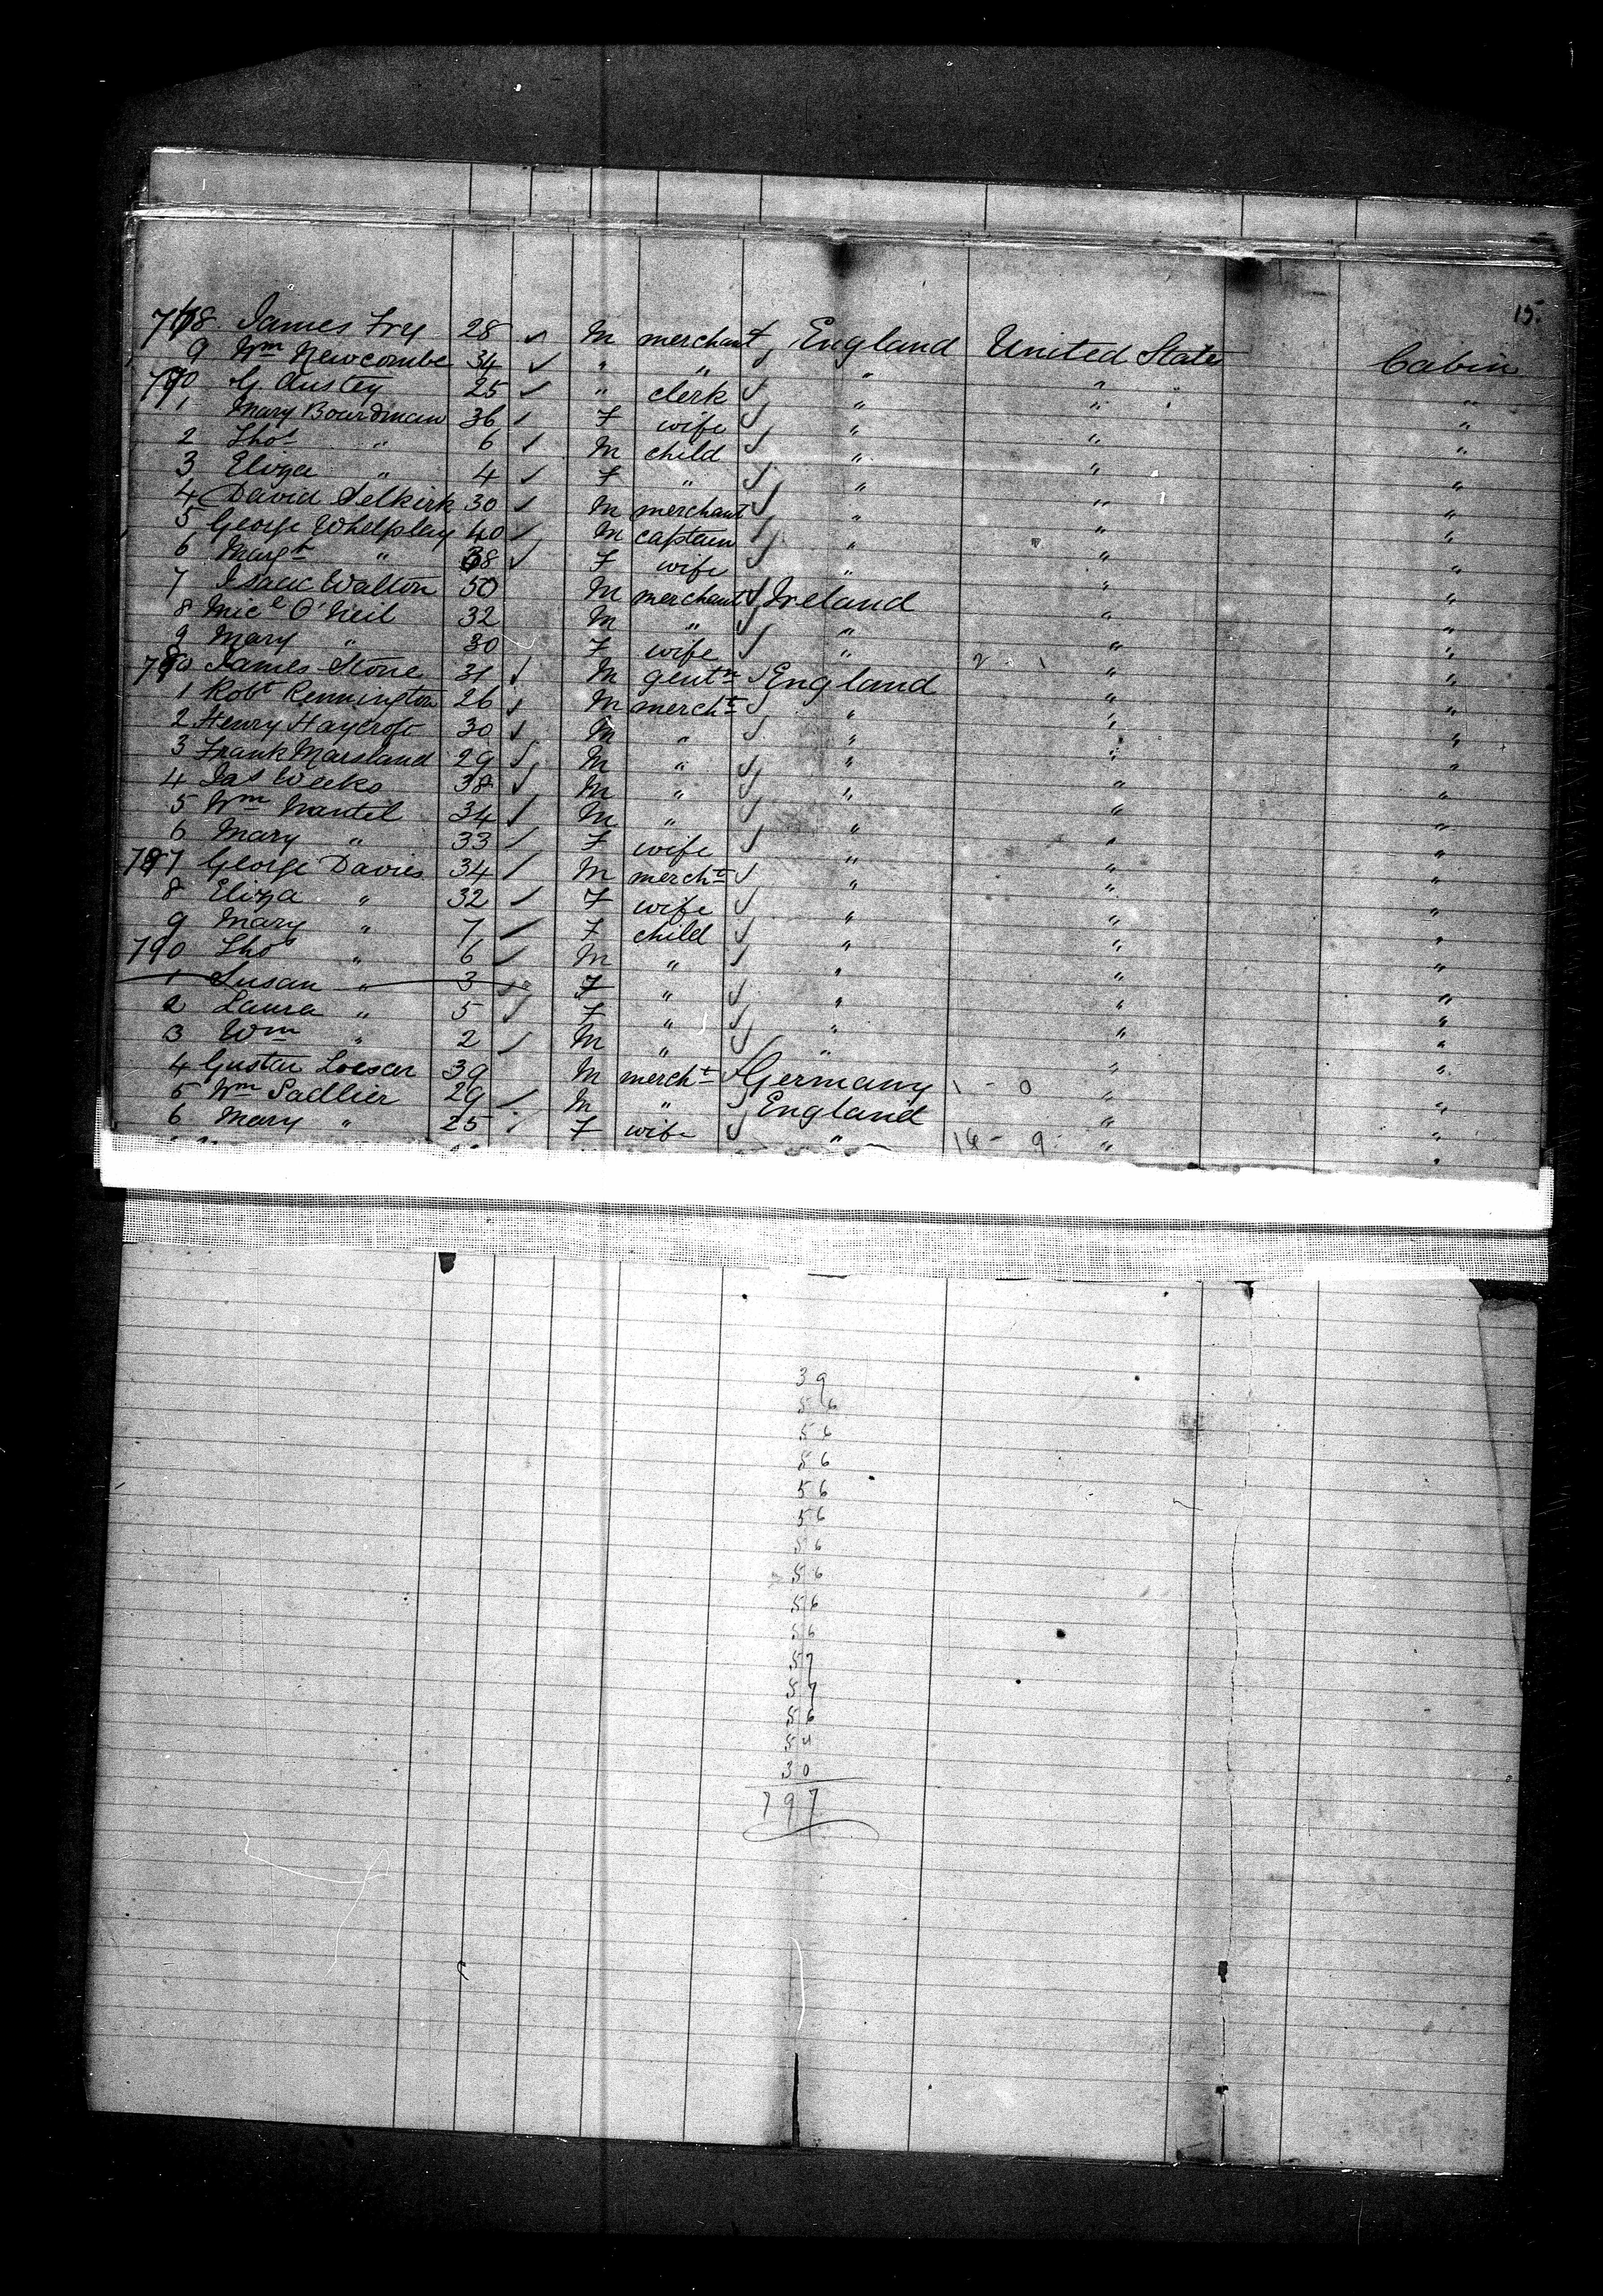 15.
768 James Fry 28 ✓ M merchant ✓ England United States Cabin
9 Wm Newcombe 34 ✓ " " " " "
770 G Anstey 25 ✓ " clerk ✓ " " "
1 Mary Boardman 36 ✓ F wife ✓ " " "
2 Thos " 6 ✓ M child ✓ " " "
3 Eliza " 4 ✓ F " ✓ " " "
4 David Selkirk 30 ✓ M merchant ✓ " " "
5 George Whelpley 40 ✓ M captain ✓ " " "
6 Margt " 38 ✓ F wife ✓ " " "
7 Isaac Walton 50 M merchant ✓ Ireland " "
8 Micl O'Neil 32 M " ✓ " " "
9 Mary " 30 F wife ✓ " " "
780 James Stone 31 ✓ M gentn ✓ England " "
1 Robt Rennington 26 ✓ M mercht ✓ " " "
2 Henry Haycroft 30 ✓ M " ✓ " " "
3 Frank Marsland 29 ✓ M " ✓ " " "
4 Jas Weeks 38 ✓ M " ✓ " " "
5 Wm Mantel 34 ✓ M " ✓ " " "
6 Mary " 33 ✓ F wife ✓ " " "
787 George Davies 34 ✓ M mercht ✓ " " "
8 Eliza " 32 ✓ F wife ✓ " " "
9 Mary " 7 ✓ F child ✓ " " "
790 Thos " 6 ✓ M " ✓ " " "
1 Susan " 3 ✓ F " ✓ " " "
2 Laura " 5 ✓ F " ✓ " " "
3 Wm " 2 ✓ M " ✓ " " "
4 Gustav Loeser 39 M mercht ✓ Germany 1 - 0 " "
5 Wm Sadlier 29 ✓ M " ✓ England " "
6 Mary " 25 ✓ F wife ✓ " 14 - 9 " "
39
56
56
56
56
56
56
56
56
56
57
57
56
54
30
797